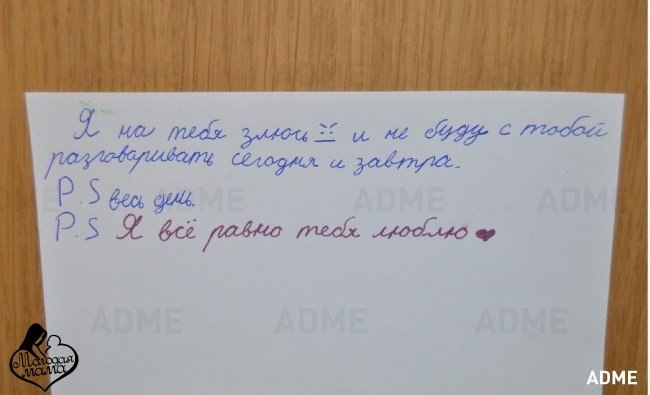 Я на тебя злюсь и не буду с тобой
разговаривать сегодня и завтра.
P.S весь день.
P.S Я всё равно тебя люблю ❤
ADME ADME
ADME ADME ADME
Молодая
мама
ADME